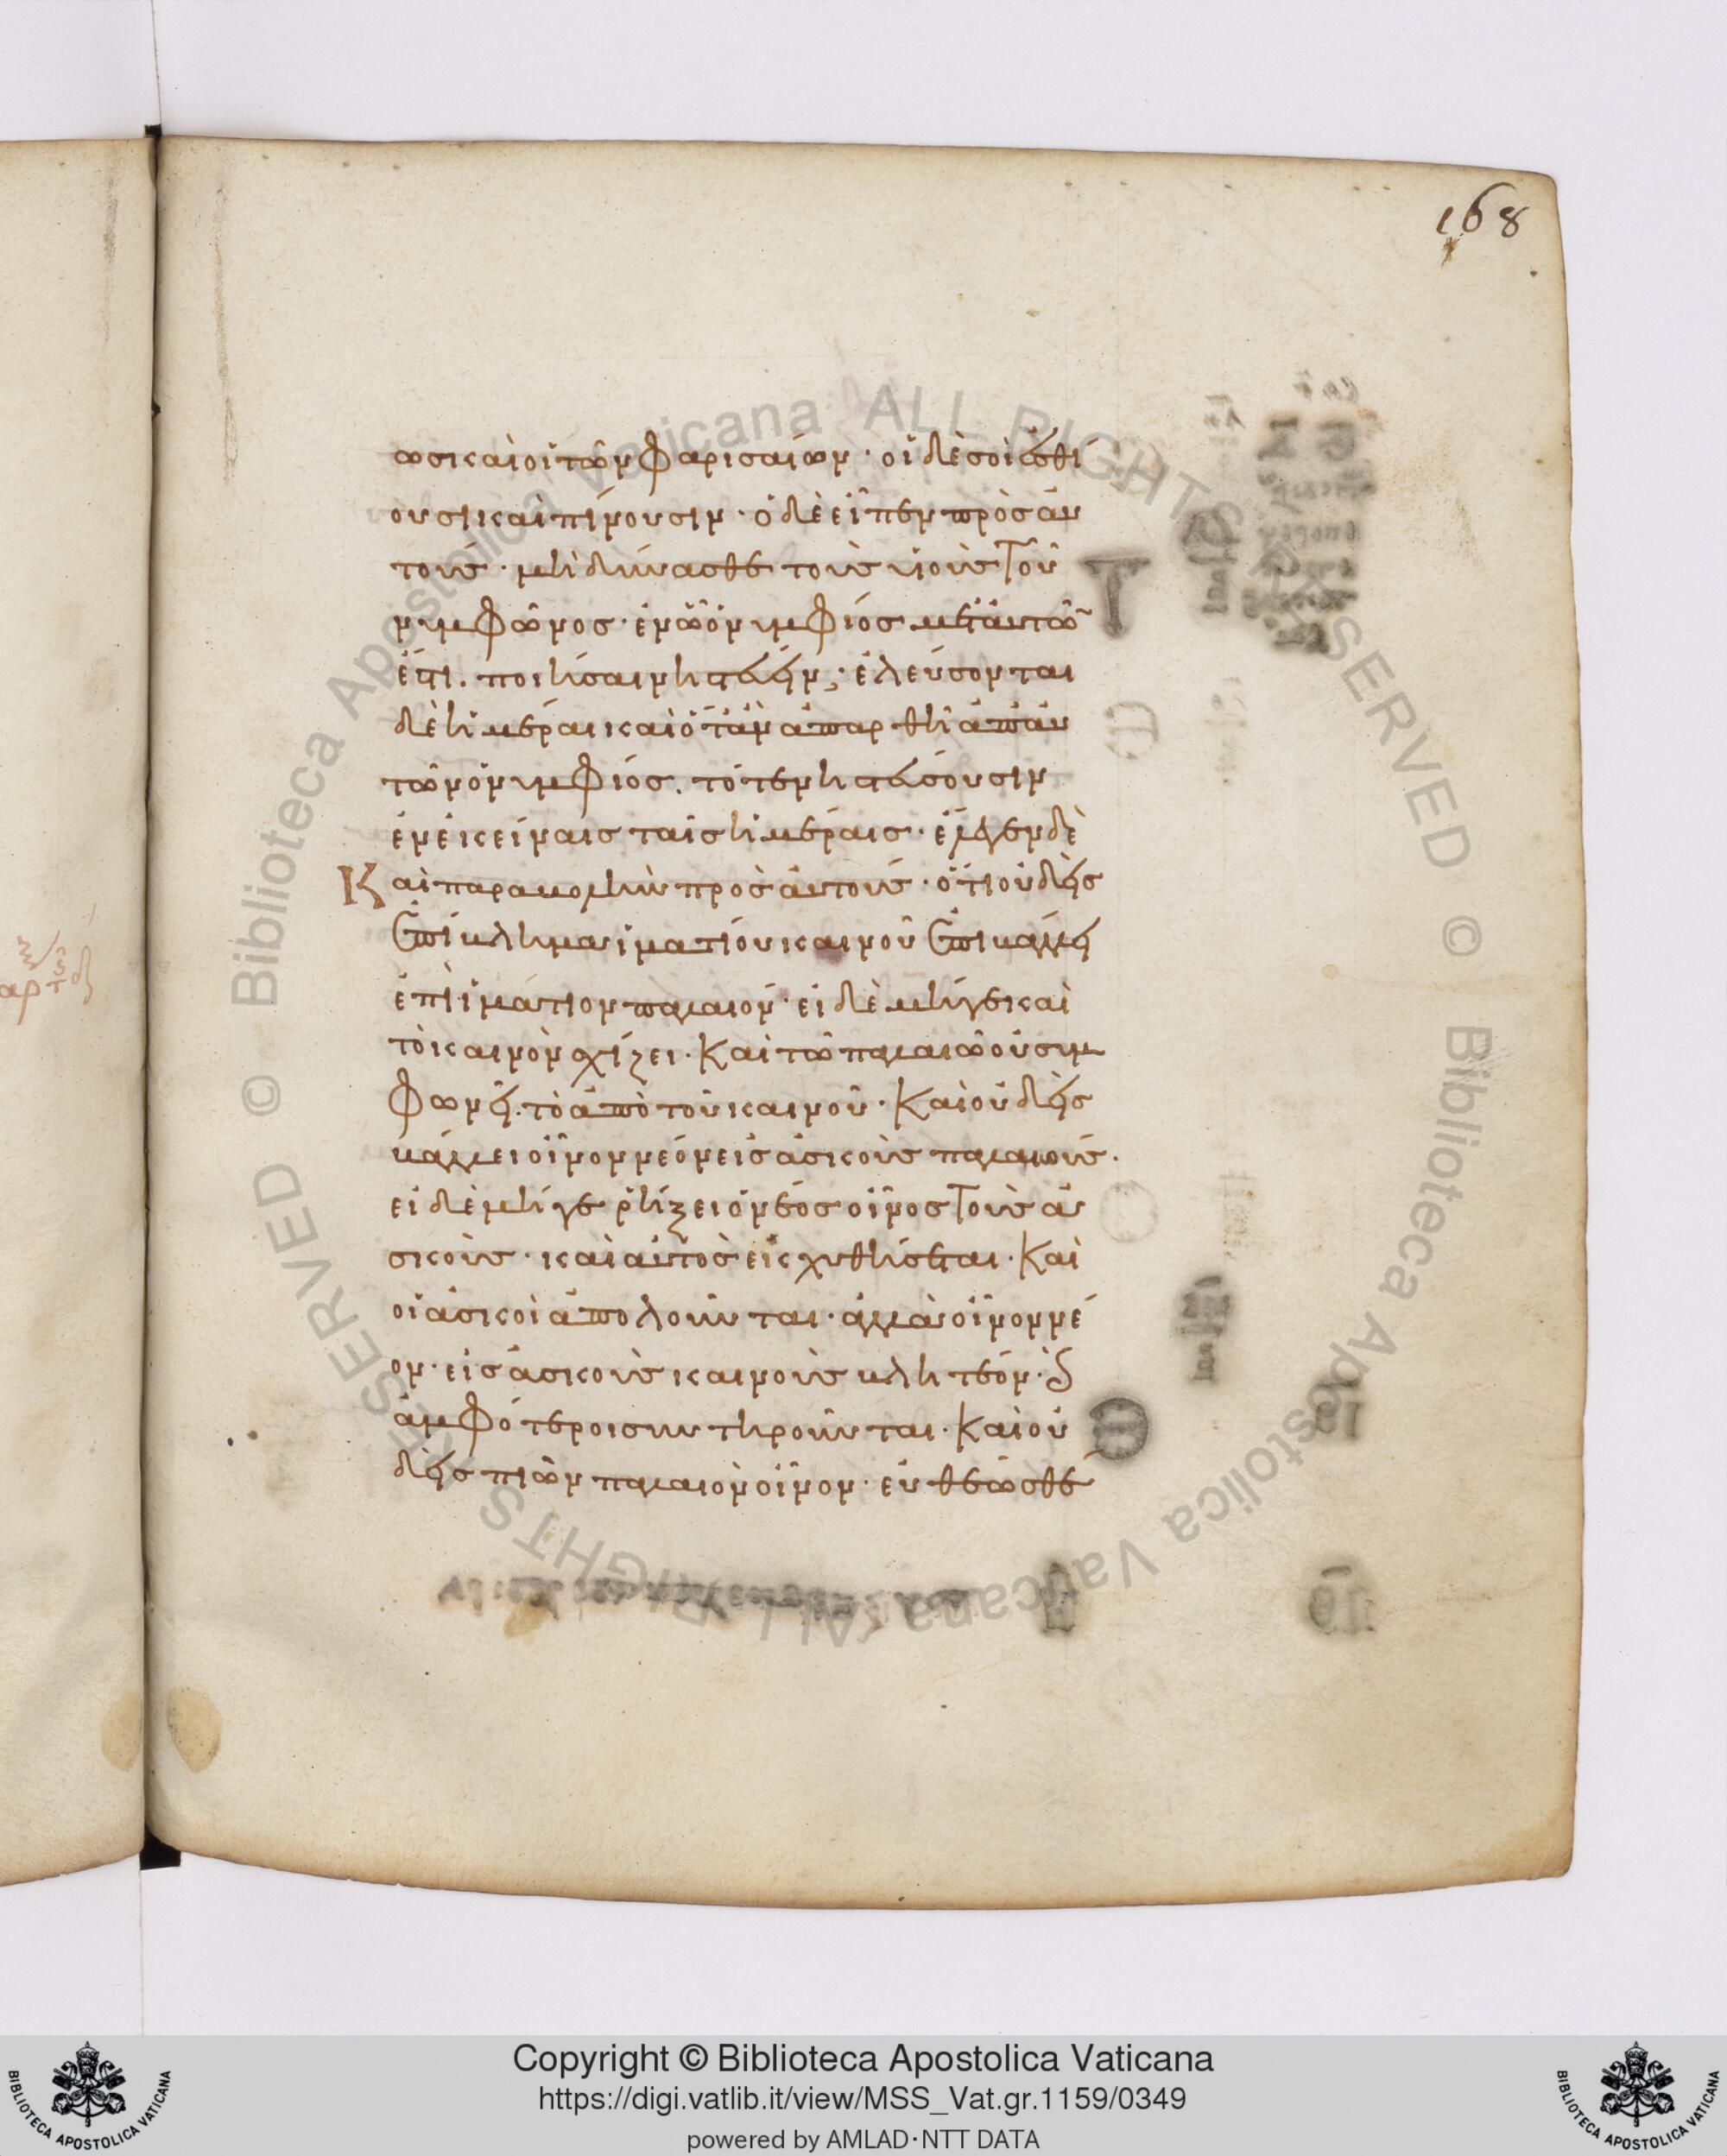 168
ως καὶ οἱ τῶν Φαρισαίων · οἱ δὲ σοὶ ἐσθί
ουσι καὶ πίνουσιν · ὁ δὲ εἶπεν πρὸς αὐ
τούς · μὴ δύνασθε τοὺς υἱοὺς τοῦ
νυμφῶνος · ἐν ᾧ ὁ νυμφίος μετ' αὐτῶ
ἐστι . ποιῆσαι νηστεύειν ; ἐλεύσονται
δὲ ἡμέραι καὶ ὅταν ἀπαρθῆ ἀπ' αὐ
τῶν ὁ νυμφίος . τότε νηστεύσουσιν
ἐν ἐκείναις ταῖς ἡμέραις · ἔλεγεν δὲ
Καὶ παραβολὴν πρὸς αὐτούς · ὅτι οὐδεὶς
ἐπίβλημα ἱματίου καινοῦ ἐπιβάλλει
ἐπὶ ἱμάτιον παλαιόν · εἰ δὲ μήγε καὶ
τὸ καινὸν σχίζει · Καὶ τῶ παλαιῶ οὐ συμ
φωνεῖ . τὸ ἀπὸ τοῦ καινοῦ · Καὶ οὐδεὶς
βάλλει οἶνον νέον εἰς ἀσκοὺς παλαιούς ·
εἰ δὲ μήγε ῥήξει ὁ νέος οἶνος τοὺς ἀ
σκούς · καὶ αὐτὸς ἐκχυθήσεται · Καὶ
οἱ ἀσκοὶ ἀπολοῦνται · ἀλλὰ οἶνον νέ
ον · εἰς ἀσκοὺς καινοὺς βλητέον · καὶ
ἀμφότεροι συντηροῦνται · Καὶ οὐ
δεὶς πιὼν παλαιὸν οἶνον · εὐθέως θέ
Copyright © Biblioteca Apostolica Vaticana
https://digi.vatlib.it/view/MSS_Vat.gr.1159/0349
powered by AMLAD·NTT DATA
BIBLIOTECA APOSTOLICA VATICANA
BIBLIOTECA APOSTOLICA VATICANA
Biblioteca Apostolica Vaticana ALL RIGHTS RESERVED © Biblioteca Apostolica Vaticana ALL RIGHTS RESERVED ©